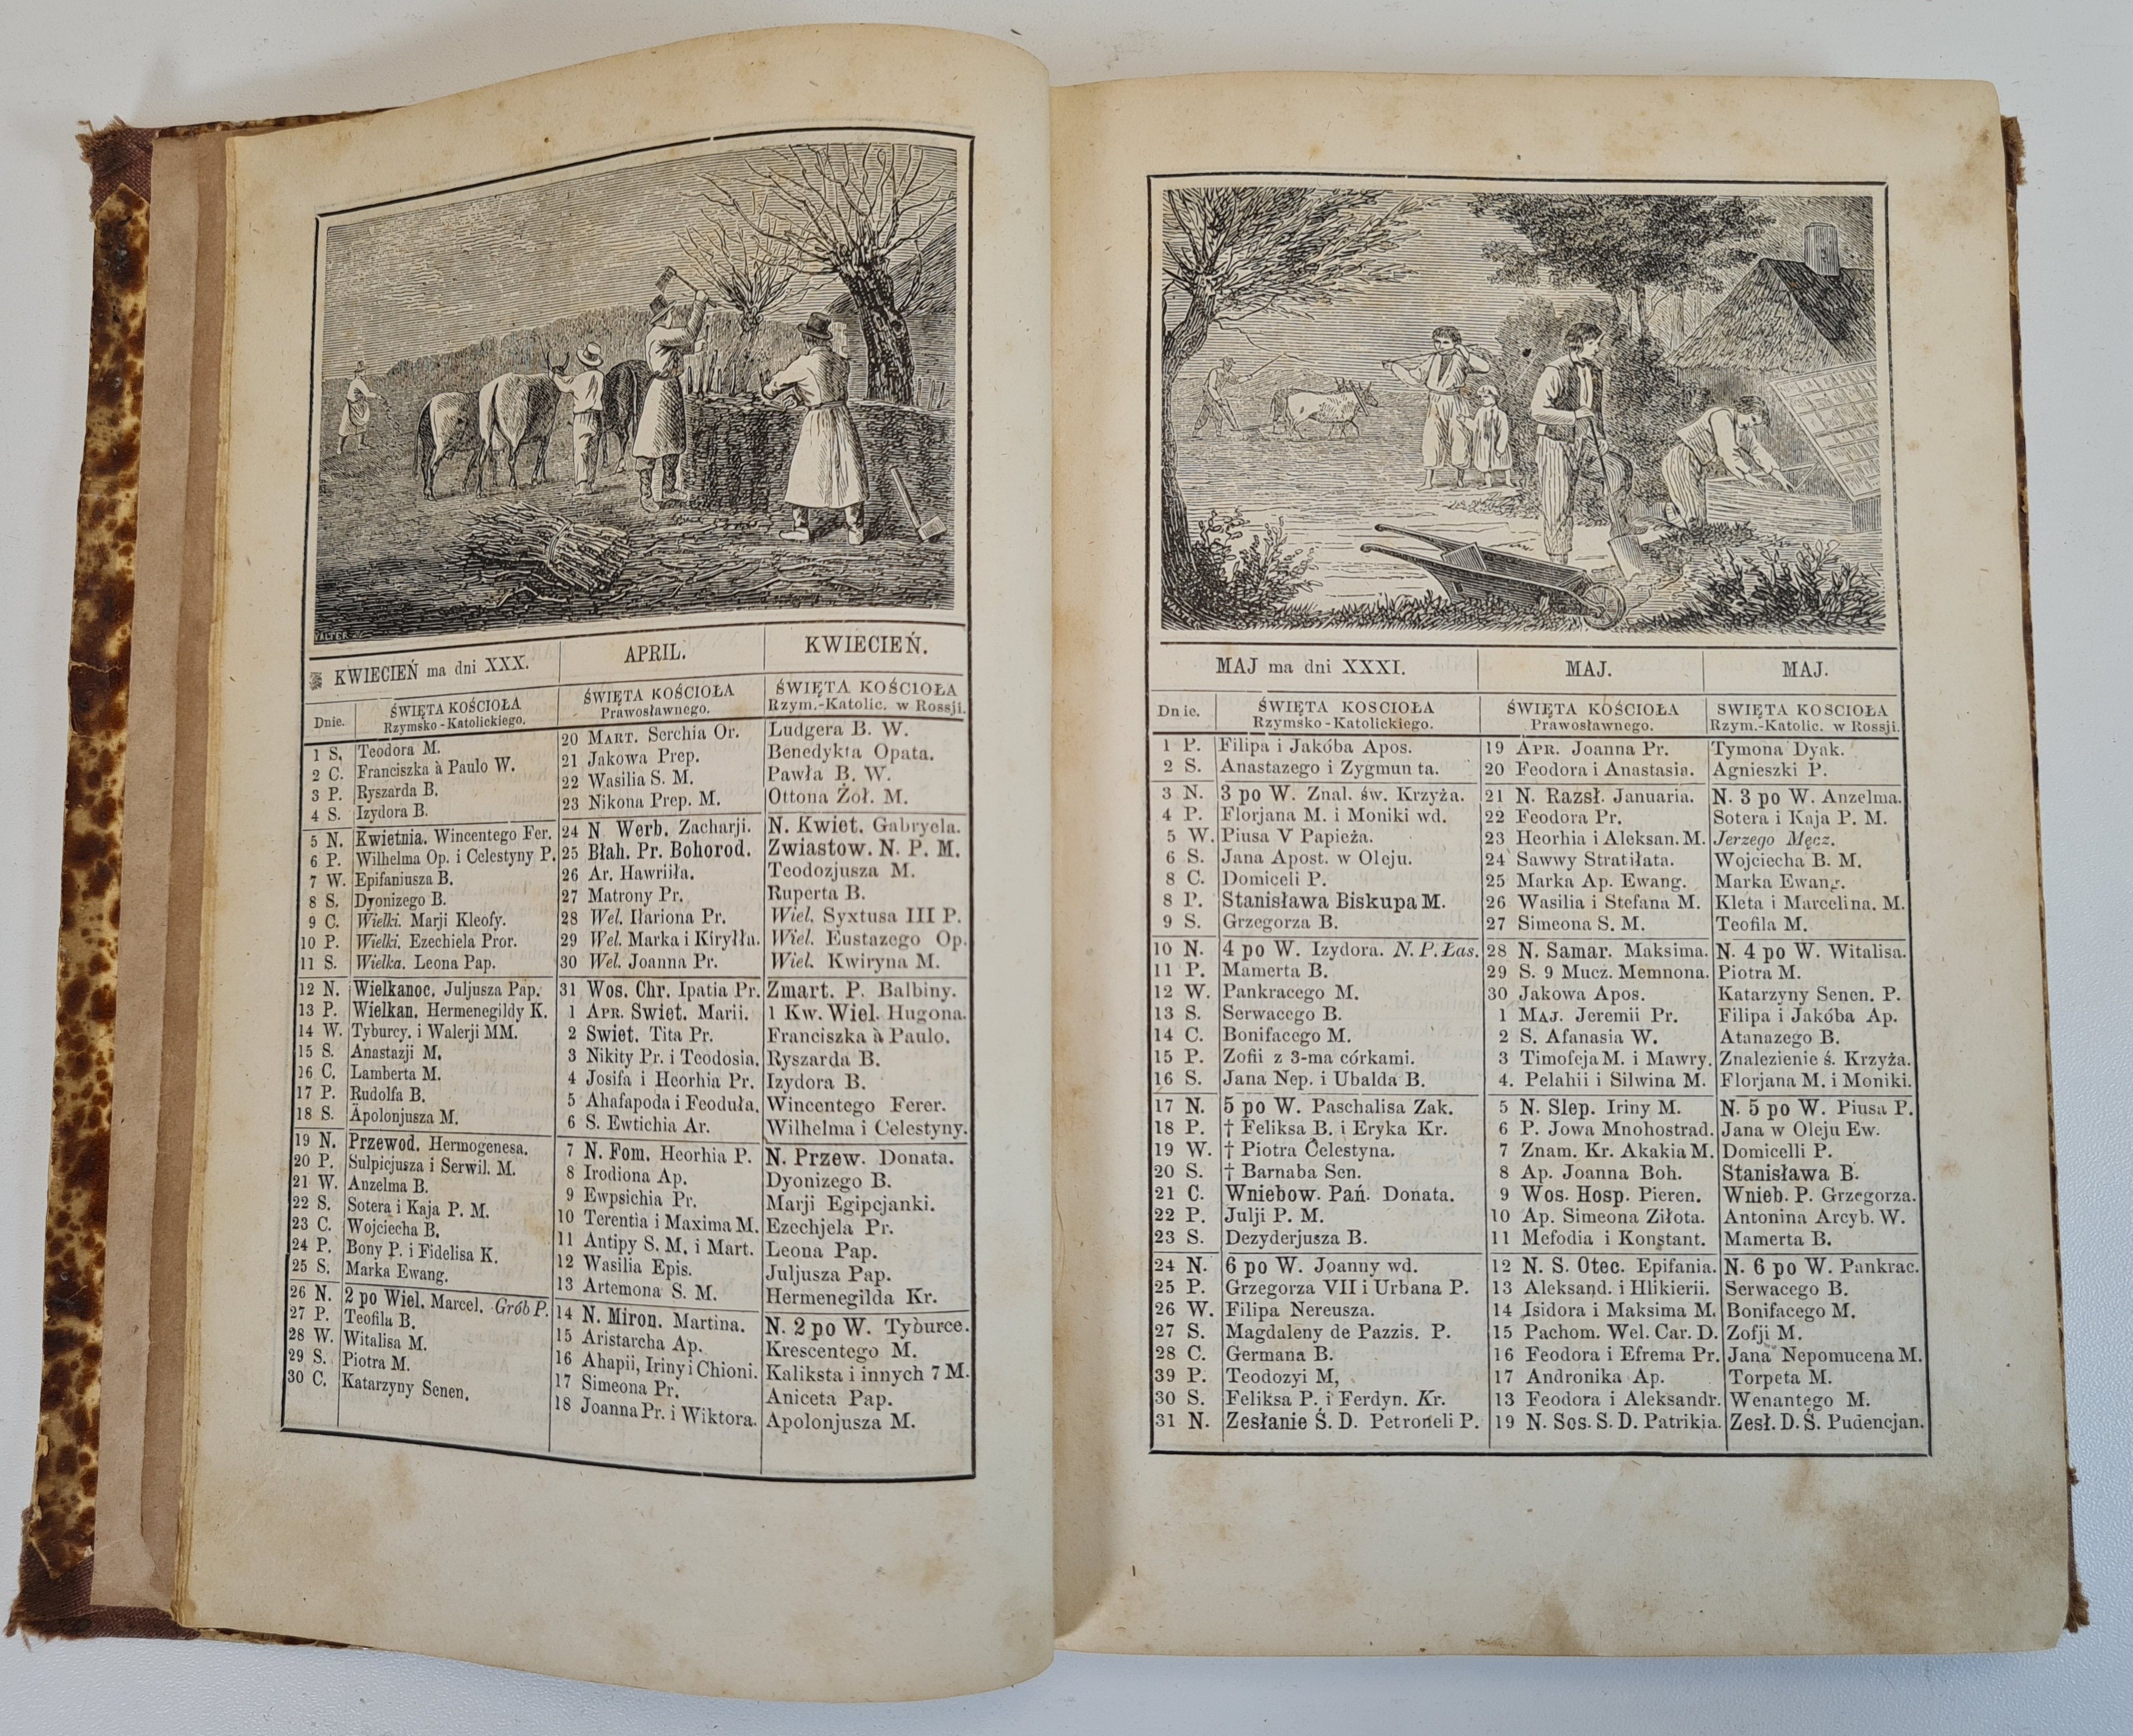 KWIECIEŃ ma dni XXX. APRIL. KWIECIEŃ.
Dnie. ŚWIĘTA KOŚCIOŁA Rzymsko-Katolickiego. ŚWIĘTA KOŚCIOŁA Prawosławnego. ŚWIĘTA KOŚCIOŁA Rzym.-Katolic. w Rossji.
1 S. Teodora M. 20 MART. Serchia Or. Ludgera B. W.
2 C. Franciszka à Paulo W. 21 Jakowa Prep. Benedykta Opata.
3 P. Ryszarda B. 22 Wasilia S. M. Pawła B. W.
4 S. Izydora B. 23 Nikona Prep. M. Ottona Żoł. M.
5 N. Kwietnia. Wincentego Fer. 24 N Werb. Zacharji. N. Kwiet. Gabryela.
6 P. Wilhelma Op. i Celestyny P. 25 Błah. Pr. Bohorod. Zwiastow. N. P. M.
7 W. Epifaniusza B. 26 Ar. Hawriiła. Teodozjusza M.
8 S. Dyonizego B. 27 Matrony Pr. Ruperta B.
9 C. Wielki. Marji Kleofy. 28 Wel. Ilariona Pr. Wiel. Syxtusa III P.
10 P. Wielki. Ezechiela Pror. 29 Wel. Marka i Kiryłła. Wiel. Eustazego Op.
11 S. Wielka. Leona Pap. 30 Wel. Joanna Pr. Wiel. Kwiryna M.
12 N. Wielkanoc. Juljusza Pap. 31 Wos. Chr. Ipatia Pr. Zmart. P. Balbiny.
13 P. Wielkan. Hermenegildy K. 1 APR. Swiet. Marii. 1 Kw. Wiel. Hugona.
14 W. Tyburcy. i Walerji MM. 2 Swiet. Tita Pr. Franciszka à Paulo.
15 S. Anastazji M. 3 Nikity Pr. i Teodosia. Ryszarda B.
16 C. Lamberta M. 4 Josifa i Heorhia Pr. Izydora B.
17 P. Rudolfa B. 5 Ahafapoda i Feoduła. Wincentego Ferer.
18 S. Apolonjusza M. 6 S. Ewtichia Ar. Wilhelma i Celestyny.
19 N. Przewod. Hermogenesa. 7 N. Fom. Heorhia P. N. Przew. Donata.
20 P. Sulpicjusza i Serwil. M. 8 Irodiona Ap. Dyonizego B.
21 W. Anzelma B. 9 Ewpsichia Pr. Marji Egipcjanki.
22 S. Sotera i Kaja P. M. 10 Terentia i Maxima M. Ezechjela Pr.
23 C. Wojciecha B. 11 Antipy S. M. i Mart. Leona Pap.
24 P. Bony P. i Fidelisa K. 12 Wasilia Epis. Juljusza Pap.
25 S. Marka Ewang. 13 Artemona S. M. Hermenegilda Kr.
26 N. 2 po Wiel. Marcel. Grób P. 14 N. Miron. Martina. N. 2 po W. Tyburce.
27 P. Teofila B. 15 Aristarcha Ap. Krescentego M.
28 W. Witalisa M. 16 Ahapii, Iriny i Chioni. Kaliksta i innych 7 M.
29 S. Piotra M. 17 Simeona Pr. Aniceta Pap.
30 C. Katarzyny Senen. 18 Joanna Pr. i Wiktora. Apolonjusza M.
MAJ ma dni XXXI. MAJ. MAJ.
Dnie. ŚWIĘTA KOSCIOŁA Rzymsko-Katolickiego. ŚWIĘTA KOŚCIOŁA Prawosławnego. SWIĘTA KOSCIOŁA Rzym.-Katolic. w Rossji.
1 P. Filipa i Jakóba Apos. 19 APR. Joanna Pr. Tymona Dyak.
2 S. Anastazego i Zygmunta. 20 Feodora i Anastasia. Agnieszki P.
3 N. 3 po W. Znal. św. Krzyża. 21 N. Razsł. Januaria. N. 3 po W. Anzelma.
4 P. Florjana M. i Moniki wd. 22 Feodora Pr. Sotera i Kaja P. M.
5 W. Piusa V Papieża. 23 Heorhia i Aleksan. M. Jerzego Męcz.
6 S. Jana Apost. w Oleju. 24 Sawwy Stratiłata. Wojciecha B. M.
8 C. Domiceli P. 25 Marka Ap. Ewang. Marka Ewang.
8 P. Stanisława Biskupa M. 26 Wasilia i Stefana M. Kleta i Marcelina. M.
9 S. Grzegorza B. 27 Simeona S. M. Teofila M.
10 N. 4 po W. Izydora. N. P. Łas. 28 N. Samar. Maksima. N. 4 po W. Witalisa.
11 P. Mamerta B. 29 S. 9 Mucz. Memnona. Piotra M.
12 W. Pankracego M. 30 Jakowa Apos. Katarzyny Senen. P.
13 S. Serwacego B. 1 MAJ. Jeremii Pr. Filipa i Jakóba Ap.
14 C. Bonifacego M. 2 S. Afanasia W. Atanazego B.
15 P. Zofii z 3-ma córkami. 3 Timofeja M. i Mawry. Znalezienie ś. Krzyża.
16 S. Jana Nep. i Ubalda B. 4. Pelahii i Silwina M. Florjana M. i Moniki.
17 N. 5 po W. Paschalisa Zak. 5 N. Slep. Iriny M. N. 5 po W. Piusa P.
18 P. † Feliksa B. i Eryka Kr. 6 P. Jowa Mnohostrad. Jana w Oleju Ew.
19 W. † Piotra Celestyna. 7 Znam. Kr. Akakia M. Domicelli P.
20 S. † Barnaba Sen. 8 Ap. Joanna Boh. Stanisława B.
21 C. Wniebow. Pań. Donata. 9 Wos. Hosp. Pieren. Wnieb. P. Grzegorza.
22 P. Julji P. M. 10 Ap. Simeona Ziłota. Antonina Arcyb. W.
23 S. Dezyderjusza B. 11 Mefodia i Konstant. Mamerta B.
24 N. 6 po W. Joanny wd. 12 N. S. Otec. Epifania. N. 6 po W. Pankrac.
25 P. Grzegorza VII i Urbana P. 13 Aleksand. i Hlikierii. Serwacego B.
26 W. Filipa Nereusza. 14 Isidora i Maksima M. Bonifacego M.
27 S. Magdaleny de Pazzis. P. 15 Pachom. Wel. Car. D. Zofji M.
28 C. Germana B. 16 Feodora i Efrema Pr. Jana Nepomucena M.
39 P. Teodozyi M, 17 Andronika Ap. Torpeta M.
30 S. Feliksa P. i Ferdyn. Kr. 13 Feodora i Aleksandr. Wenantego M.
31 N. Zesłanie Ś. D. Petroneli P. 19 N. Sos. S. D. Patrikia. Zesł. D. Ś. Pudencjan.